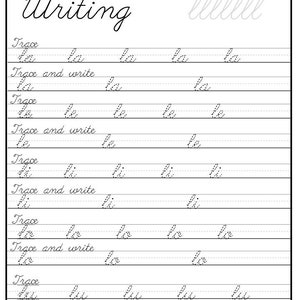 Writing lllllll
Trace
la la la la la
Trace and write
la la la
Trace
le le le le le
Trace and write
le le le
Trace
li li li li li
Trace and write
li li li
Trace
lo lo lo lo lo
Trace and write
lo lo lo
Trace
lu lu lu lu lu